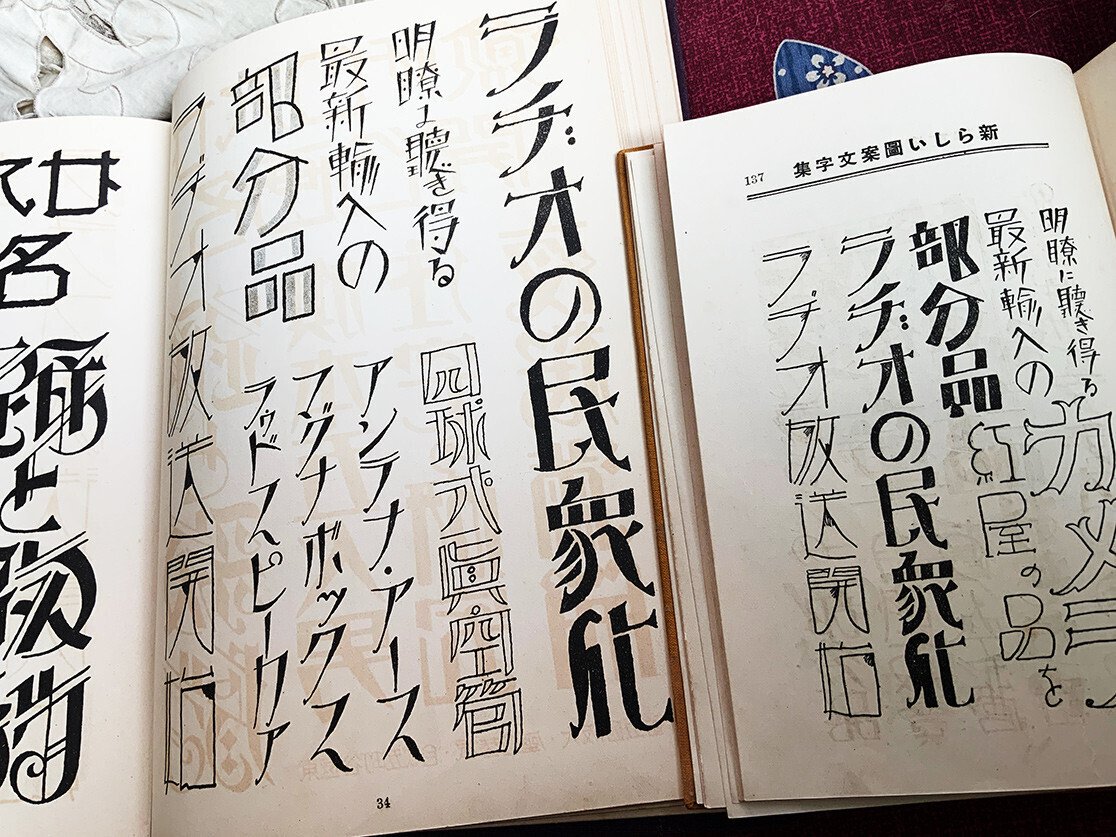 ラヂオの民衆化
明瞭に聴き得る
最新輸入の
部分品
ラヂオ放送開始
四球式眞空管
アンテナ・アース
マグナボックス
ラゥドスピーカァ
34
新らしい圖案文字集
137
明瞭に聴き得る
最新輸入の
部分品
ラヂオの民衆化
ラヂオ放送開始
紅屋の品を